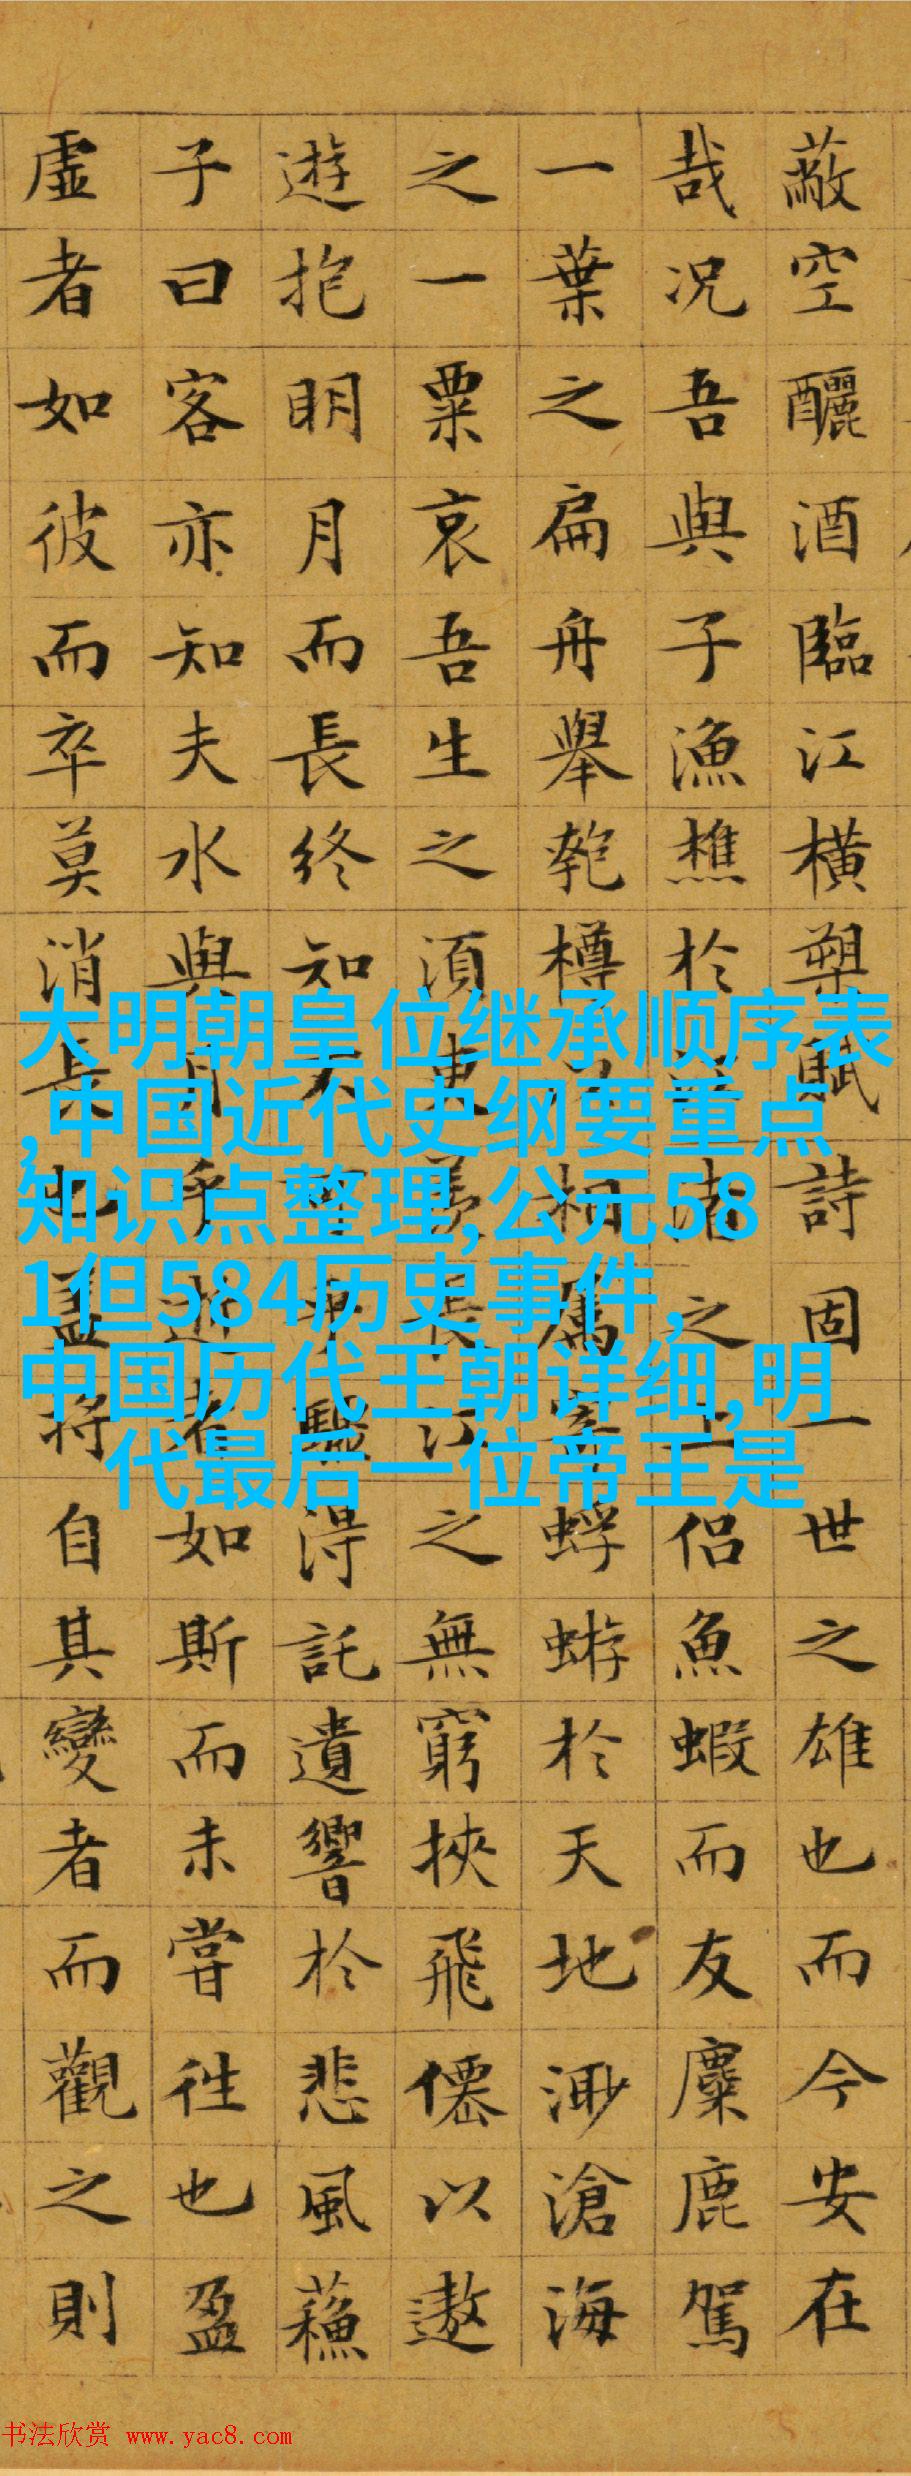 蔽空釃酒臨江橫槊賦詩固一世之雄也而今安在
哉况吾與子漁樵於渚之上侶魚蝦而友麋鹿駕
一葉之扁舟舉匏樽相屬蜉蝣於天地渺滄海
之一粟哀吾生之須臾羨長江之無窮挾飛僊以遨
遊抱明月而長終知不可乎驟得託遺響於悲風蘇
子曰客亦知夫水與月乎逝者如斯而未嘗往也盈
虛者如彼而卒莫消長也蓋將自其變者而觀之則
大明朝皇位继承顺序表
,中国近代史纲要重点
知识点整理,公元58
1但584历史事件,
中国历代王朝详细,明
代最后一位帝王是
书法欣赏 www.yac8.com